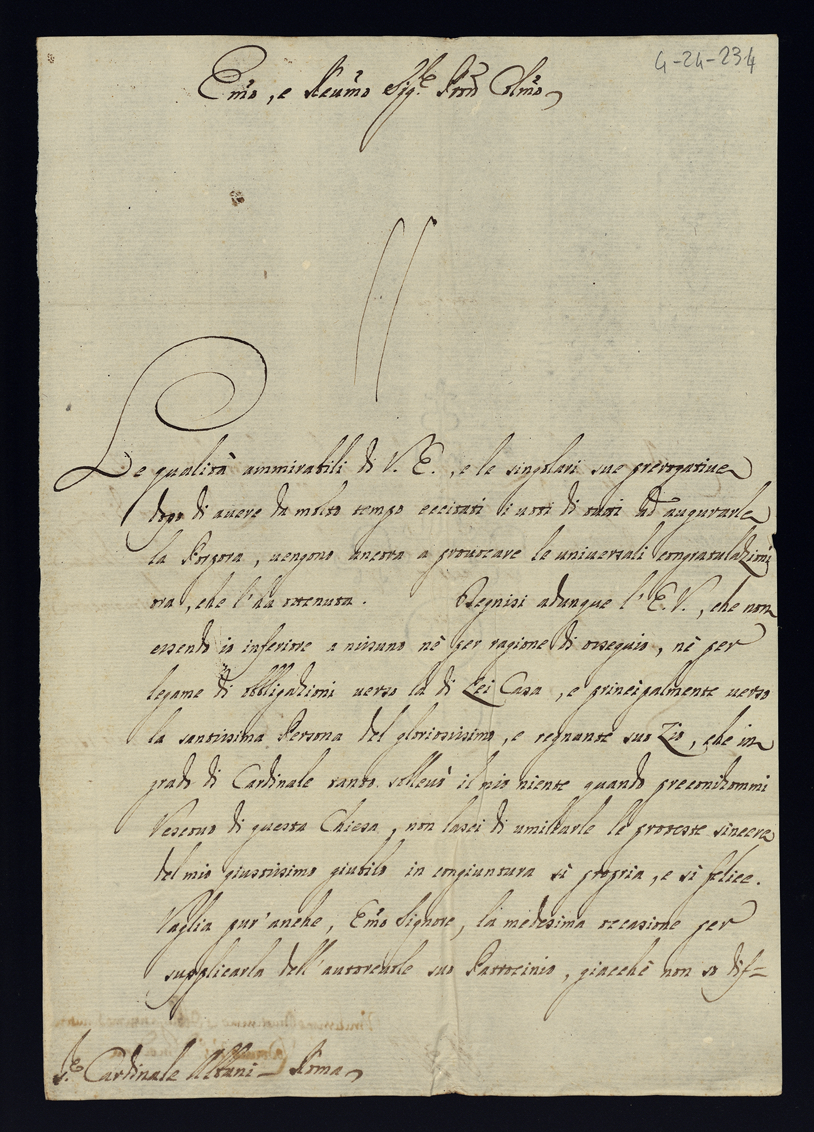 4-24-234
Em̃o, e Reuẽmo Sig.re Pron̄ Colm̃o
Le qualità ammirabili di V. E., e le singolari sue prerogatiue
dopo di auere da molto tempo eccitati i uoti di tutti ad augurarle
la Porpora, uengono ancora a prouocare le uniuersali congratulazioni
ora, che l'ha ottenuta. Degnisi adunque l'E. V., che non
essendo io inferiore a nissuno nè per ragione di ossequio, nè per
legame di obbligazioni uerso la di Lei Casa, e principalmente uerso
la santissima Persona del gloriosissimo, e regnante suo Zio, che in
grado di Cardinale tanto solleuò il mio niente quando preconizommi
Vescouo di questa Chiesa, non lasci di umiliarle le proteste sincere
del mio giustissimo giubilo in congiuntura sì propria, e sì felice.
Vaglia pur'anche, Em̃o Signore, la medesima occasione per
supplicarla dell'autoreuole suo Patrocinio, giacchè non so dif=
S.re Cardinale Albani — Roma